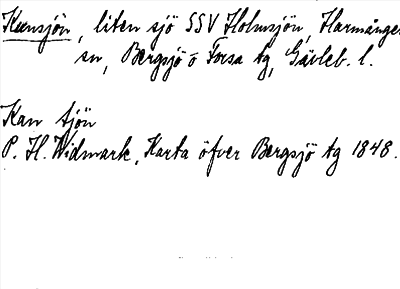 Kunsjön, liten sjö SSV Holmsjön, Harmånger
sn, Bergsjö o Forsa tg, Gävleb. l.
Kan tjön
P. H. Widmark, Karta öfver Bergsjö tg 1848.